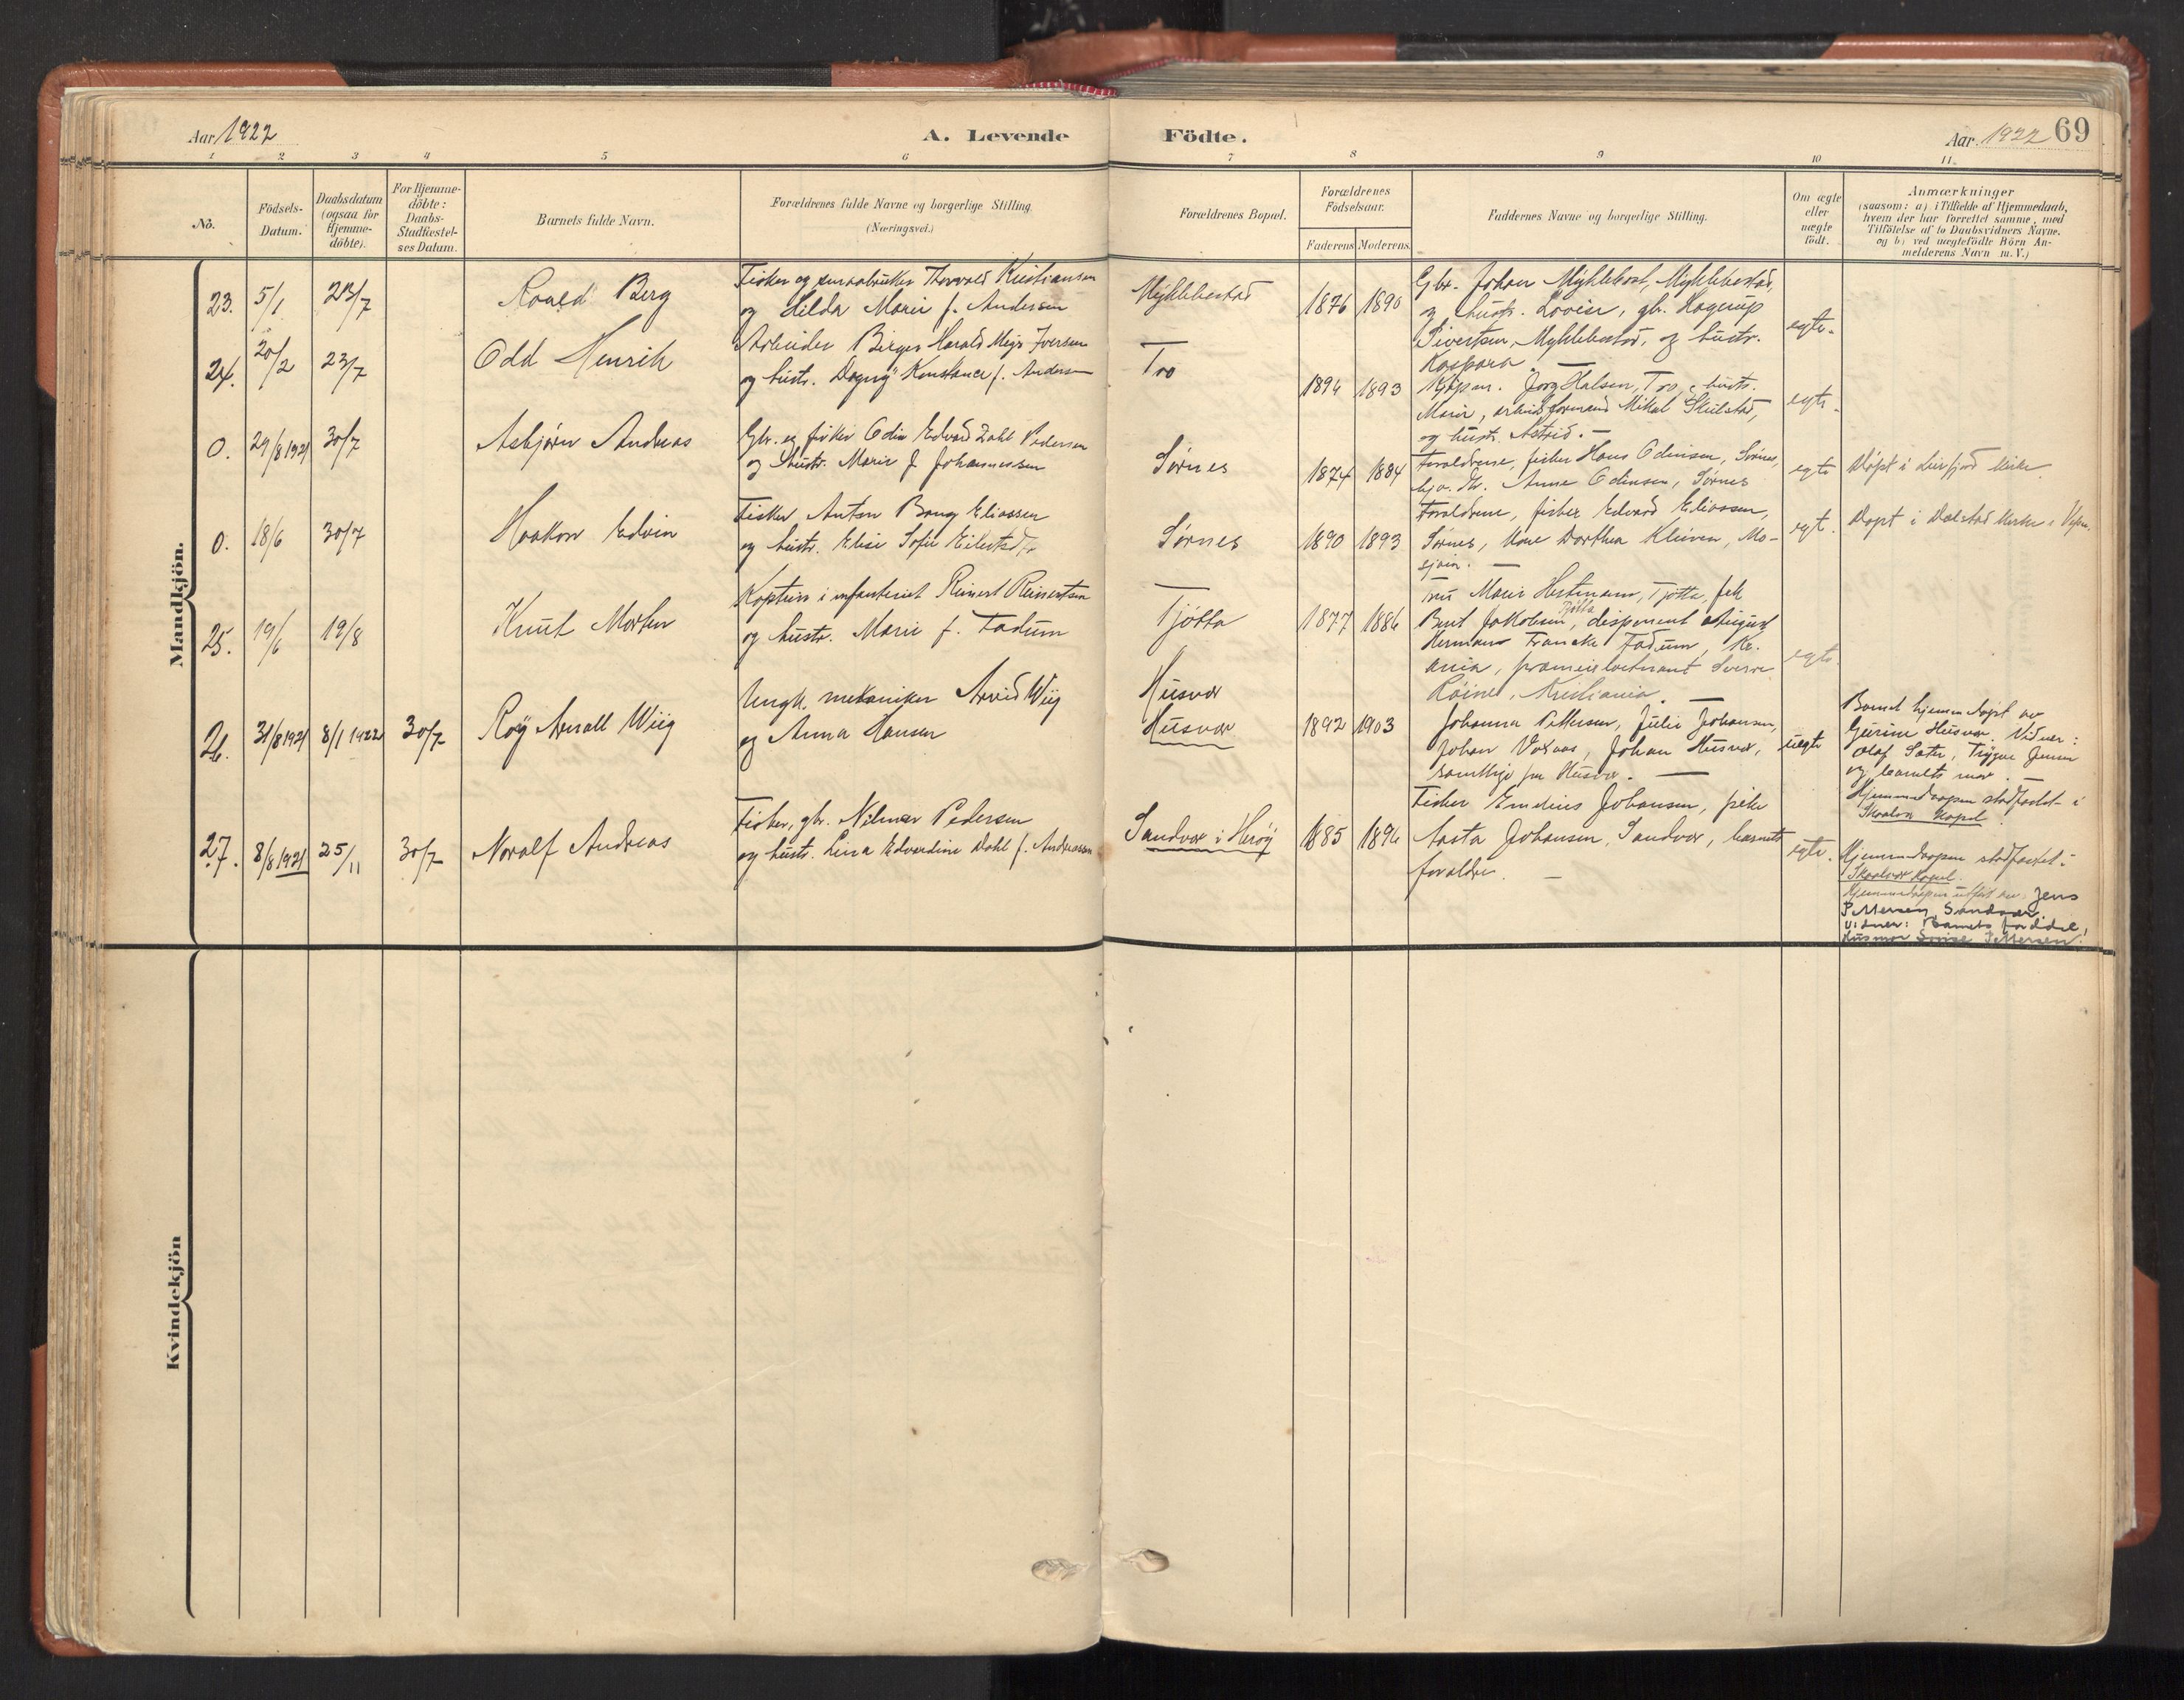 Aar 1922
A. Levende
Födte.
Aar 1922
69
1 2 3 4 5 6 7 8 9 10 11.
No.
Födsels-
Datum.
Daabsdatum
(ogsaa for
Hjemme-
döbte).
For Hjemme-
döbte:
Daabs-
Stadfæstel-
ses Datum.
Barnets fulde Navn.
Forældrenes fulde Navne og borgerlige Stilling.
(Næringsvei.)
Forældrenes Bopæl.
Forældrenes
Födselsaar.
Faderens
Moderens.
Faddernes Navne og borgerlige Stilling.
Om ægte
eller
uægte
födt.
Anmærkninger
(saasom: a) i Tilfælde af Hjemmedaab,
hvem der har forrettet samme, med
Tilföielse af to Daabsvidners Navne,
og b) ved uægtefödte Börn An-
melderens Navn m.V.)
Mandkjön.
23. 5/1 23/7
Roald Berg
Fisker og Thorvald Kristiansen
og Hilda Marie f. Andersen
Myklebostad
1876 1890
Gbr. Johan Myklebost, Myklebostad,
og hustr. Lovise, gb. Hagerup
Sivertsen, Myklebostad, og hustr.
Kaspara —
egte.
24. 20/2 23/7
Odd Henrik
Arbeider Birger Harald Meyer Iversen
og hustr. Dagny Konstance f. Andersen
Tro
1894 1893
Kjøpm. Halsen, Tro, hustr.
Marie, arbeidsformand Mikal Skilstad,
og hustr. Astrid. —
egte.
0. 29/8 1921 30/7
Asbjørn Andreas
Gbr. og fisker Odin Edvard Dahl Pedersen
og hustr. Marie f. Johannessen
Sørnes
1874 1884
Forældrene, fisker Hans Odinsen, Sørnes,
Anne Odinsen, Sørnes
egte
Døpt i Leirfjord kirke
0. 18/6 30/7
Haakon Edvin
Fisker Anton Eliassen
og hustr. Elise Sofie
Sørnes
1890 1893
Forældrene, fisker Edvard Eliassen,
Sørnes, Dorthea Kleiven, Mo-
sjøen. —
egt.
Døpt i Dolstad kirke i
25. 19/6 19/8
Knut Morten
Kaptein i infanteriet Reinert Reinertsen
og hustr. Marie f. Fadum
Tjøtta
1877 1886
Fru Marie Hartmann, Tjøtta, frk
Berit Jakobsen, Tjøtta, disponent August
Herman Francke Fadum, Kr.
ania, premierløitnant Sverre
Kristiania. —
egte.
26. 31/8 1921 8/1 1922 30/7
Roy Arnalt Wiig
Ungk. mekaniker Arvid Wiig
og Anna Hansen
Husvær
Husvær
1892 1903
Johanna Pettersen, Julie Johansen,
Johan Johan Husvær,
samtlige fra Husvær. —
uegte
Barnet hjemmedøpt av
Husvær. Vidner:
Olaf Trygve Jensen
og barnets mor. —
Hjemmedaapen stadfæstet i
Skaalvær Kapel.
27. 8/8 1921 25/11 30/7
Noralf Andreas
Fisker, gbr. Nilmar Pedersen
og hustr. Lina Edvardine Dahl f. Andreassen
Sandvær i Herøy
1885 1896
Fisker Emelius Johansen, pike
Aasta Johansen, Sandvær, barnets
forældre. —
egte.
Hjemmedaapen stadfæstet i
Skaalvær Kapel.
Hjemmedaapen utført av Jens
Pettersen, Sandvær.
Vidner: Barnets forældre,
Husmor Pettersen.
Kvindekjön